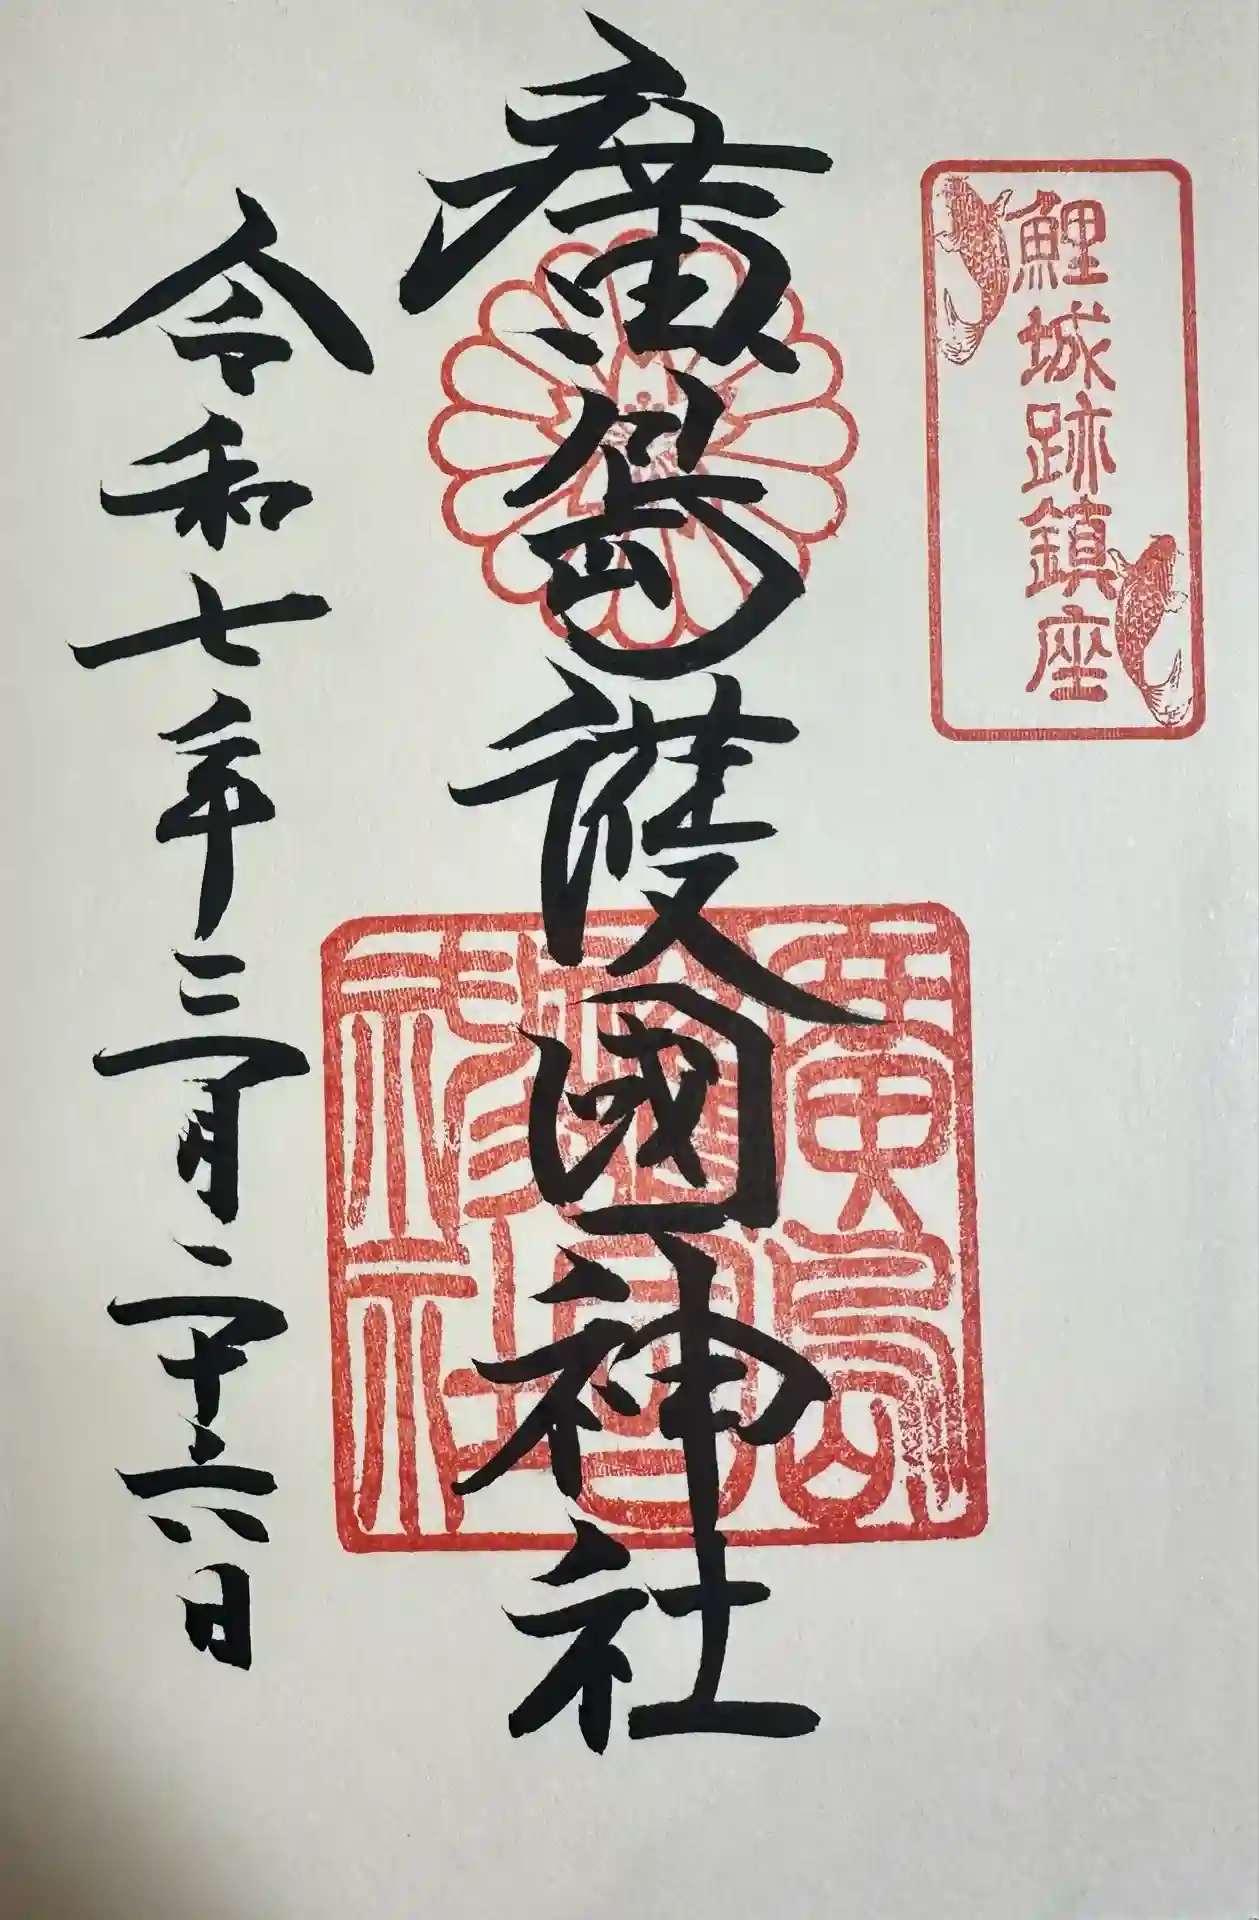 鯉城跡鎮座
廣島護國神社
廣島
護國
神社
令和七年三月二十六日